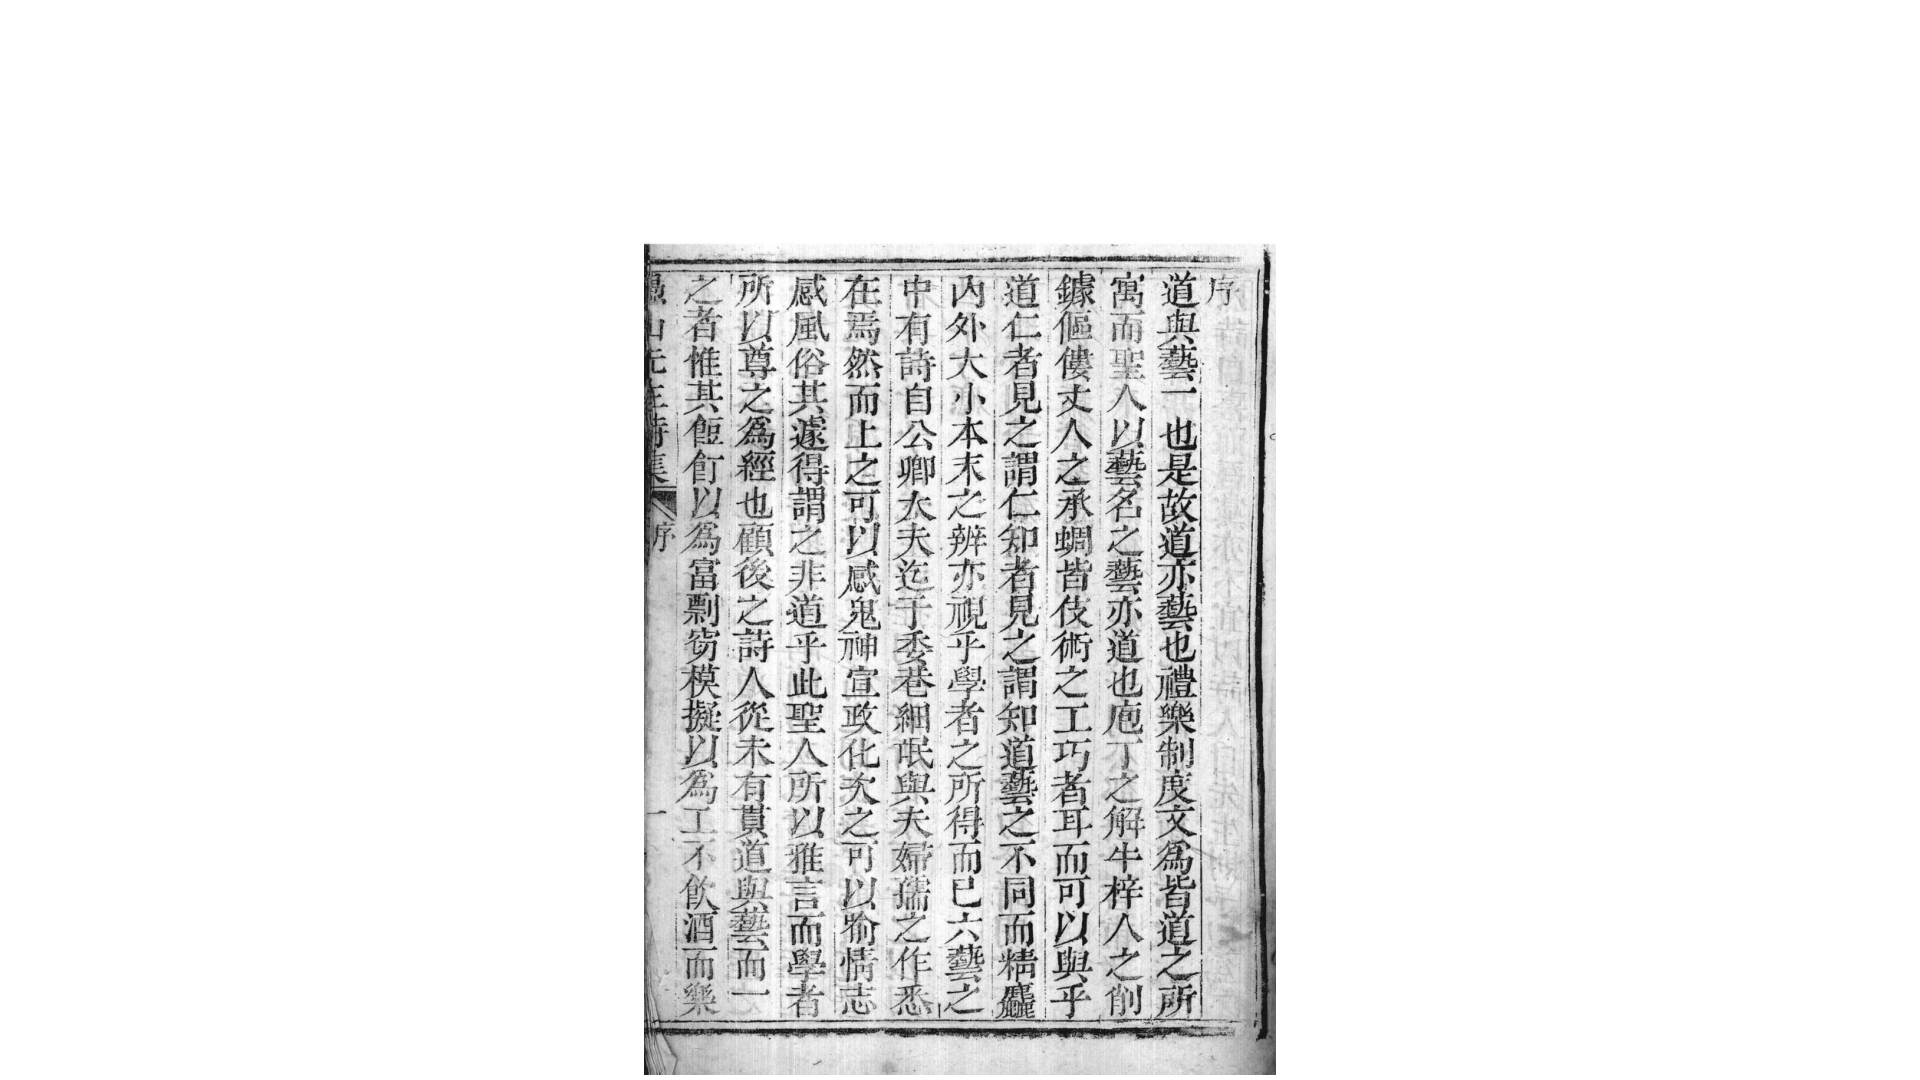 序
道與藝一也是故道亦藝也禮樂制度文爲皆道之所
寓而聖人以藝名之藝亦道也庖丁之解牛梓人之削
鐻傴僂丈人之承蜩皆伎術之工巧者耳而可以與乎
道仁者見之謂仁知者見之謂知道藝之不同而精麤
內外大小本末之辨亦視乎學者之所得而已六藝之
中有詩自公卿大夫迄于委巷細氓與夫婦孺之作悉
在焉然而上之可以感鬼神宣政化次之可以喻情志
感風俗其遽得謂之非道乎此聖人所以雅言而學者
所以尊之爲經也顧後之詩人從未有貫道與藝而一
之者惟其餖飣以爲富剽窃模擬以爲工不飲酒而樂
山先生詩集 序 一